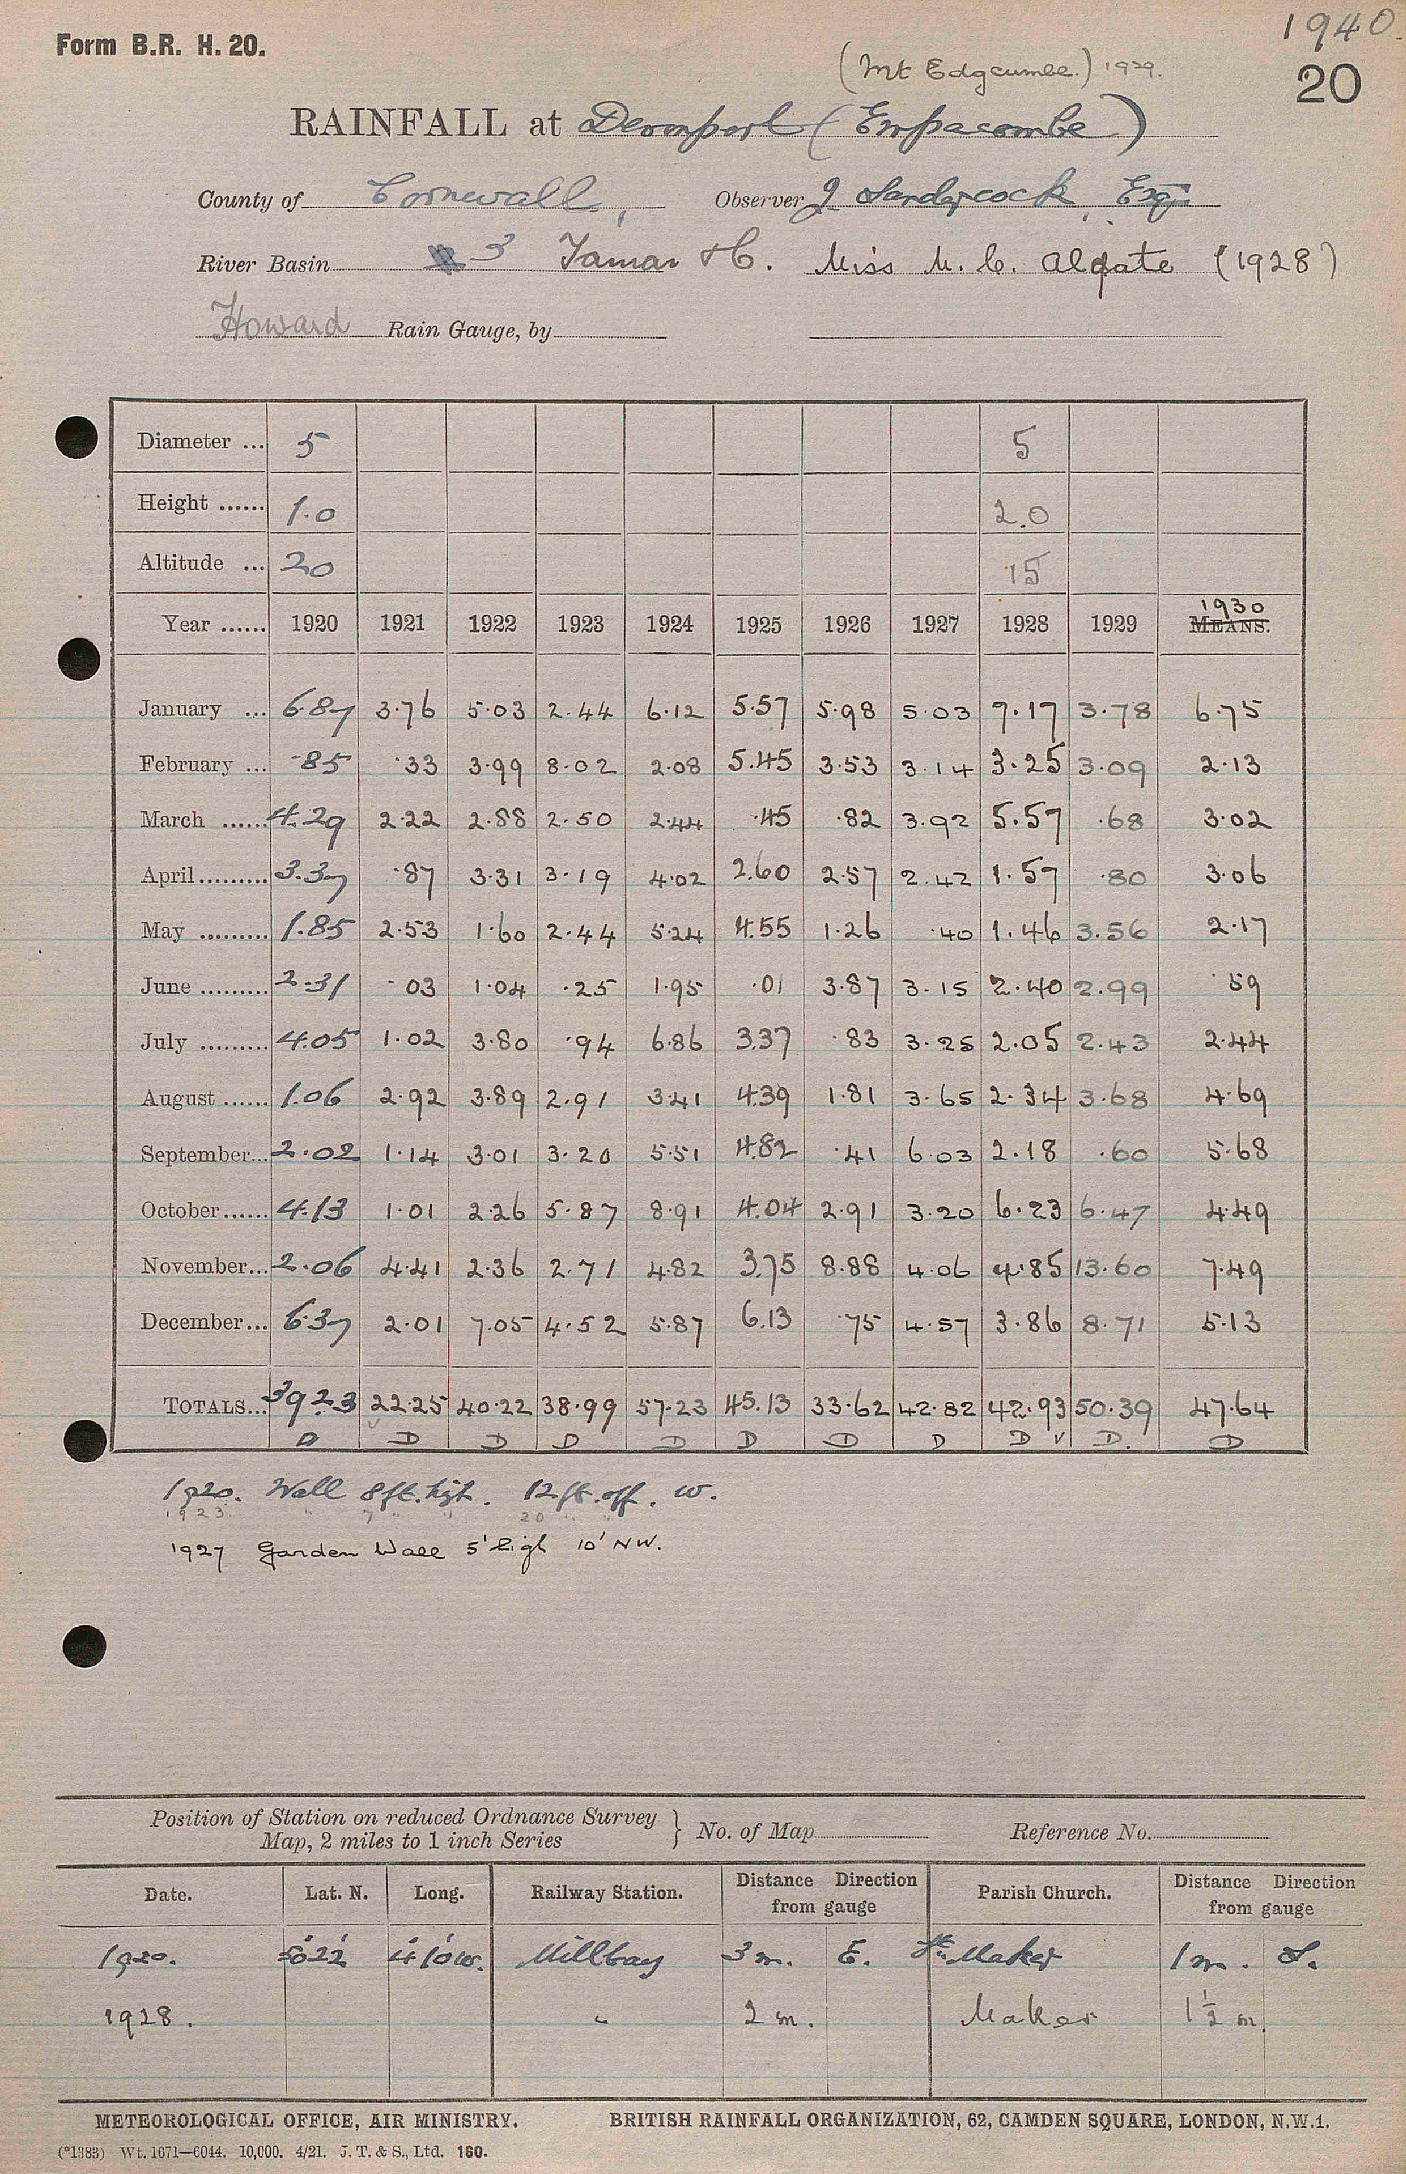 1940.
Form B.R. H. 20.
(Mt Edgcumbe.) 1929.
20
RAINFALL at Devonport (Empacombe)
County of Cornwall, Observer J Sandercock, Esq
River Basin 3 Tamar &c. Miss M. C. Algate (1928)
Howard Rain Gauge, by
Diameter ... 5 5
Height ...... 1.0 2.0
Altitude ... 20 15
Year ...... 1920 1921 1922 1923 1924 1925 1926 1927 1928 1929 1930 MEANS.
January ... 6.87 3.76 5.03 2.44 6.12 5.57 5.98 5.03 7.17 3.78 6.75
February ... .85 .33 3.99 8.02 2.08 5.45 3.53 3.14 3.25 3.09 2.13
March ...... 4.29 2.22 2.88 2.50 2.44 .45 .82 3.92 5.57 .68 3.02
April ......... 3.37 .87 3.31 3.19 4.02 2.60 2.57 2.42 1.57 .80 3.06
May ......... 1.85 2.53 1.60 2.44 5.24 4.55 1.26 .40 1.46 3.56 2.17
June ......... 2.31 .03 1.04 .25 1.95 .01 3.87 3.15 2.40 2.99 .59
July ......... 4.05 1.02 3.80 .94 6.86 3.37 .83 3.25 2.05 2.43 2.44
August ...... 1.06 2.92 3.89 2.91 3.41 4.39 1.81 3.65 2.34 3.68 4.69
September... 2.02 1.14 3.01 3.20 5.51 4.82 .41 6.03 2.18 .60 5.68
October ...... 4.13 1.01 2.26 5.87 8.91 4.04 2.91 3.20 6.23 6.47 4.49
November... 2.06 4.41 2.36 2.71 4.82 3.75 8.88 4.06 4.85 13.60 7.49
December... 6.37 2.01 7.05 4.52 5.87 6.13 .75 4.57 3.86 8.71 5.13
TOTALS... 39.23 22.25 40.22 38.99 57.23 45.13 33.62 42.82 42.93 50.39 47.64
D D D D D D D D D v D. D
1920. Wall 8 ft. high. 12 ft. off. W.
1923. " 7 " " 20 " "
1927 Garden Wall 5' high 10' NW.
Position of Station on reduced Ordnance Survey
Map, 2 miles to 1 inch Series } No. of Map Reference No.
Date. Lat. N. Long. Railway Station. Distance Direction from gauge Parish Church. Distance Direction from gauge
1920. 50 22 4 10 W. Millbay 3 m. E. Maker 1 m. S.
1928. " 2 m. Maker 1½ m.
METEOROLOGICAL OFFICE, AIR MINISTRY. BRITISH RAINFALL ORGANIZATION, 62, CAMDEN SQUARE, LONDON, N.W.1.
(*1383) Wt. 1671—6044. 10,000. 4/21. J. T. & S., Ltd. 160.